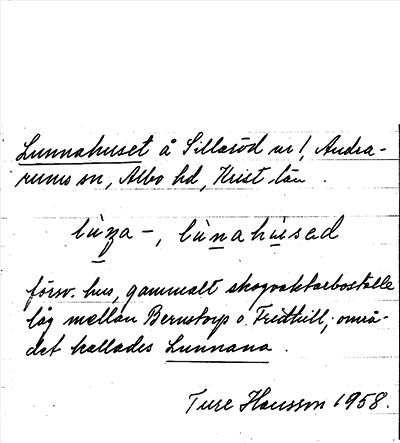 Lunnahuset å Sillaröd nr 1, Andra-
rums sn, Albo hd, Krist län.
lùna-, lùnahùsad
försv. hus, gammalt skogvaktarboställe
låg mellan Bernstorp o. Fridhill; områ-
det kallades Lunnana.
Ture Hansson 1958.